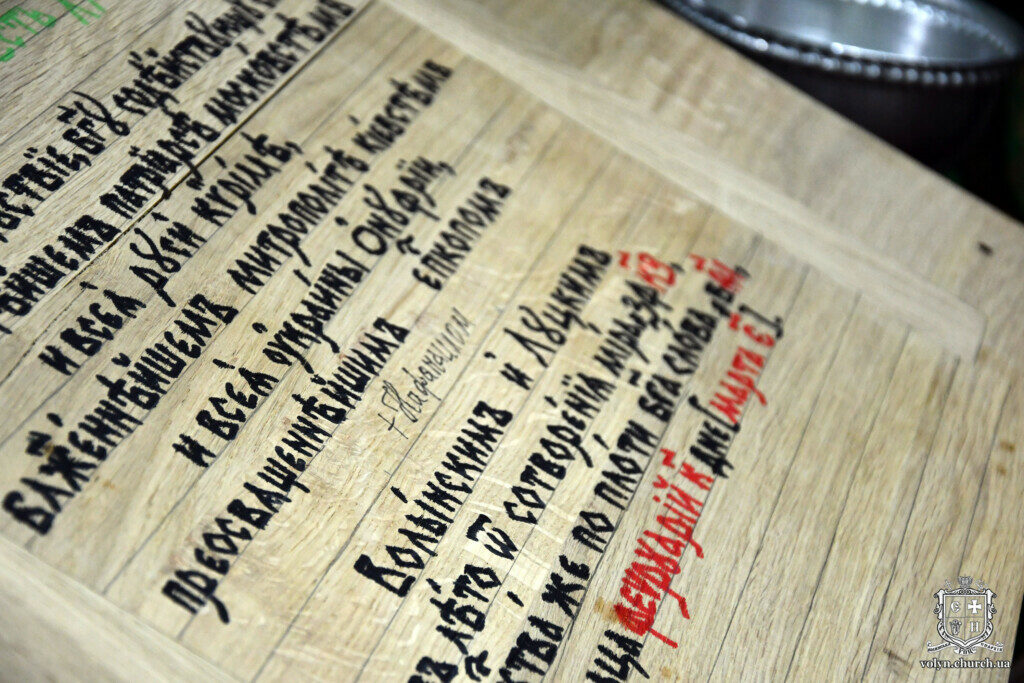 СТЬ
СОДѢЙСТВ
ѢЙШЕМЪ ПАТРІАРСѢ МОСКОВСТѢМЪ
И ВСЕѦ РꙋСИ КѴРІЛѢ,
БЛЖ҃ЕННѢЙШЕМЪ МИТРОПОЛИТѢ КІЕВСТѢМЪ
И ВСЕѦ ОУКРАЙНЫ ОНꙋФРІИ,
ПРЕОСВАЩЕННѢЙШИМЪ ЕП҃КОПОМЪ
+ Нафанаилом
ВОЛЫ́НСКИМЪ И ЛꙋЦКИМЪ
ВЪ ЛѢТО Ѿ СОТВОРЕ́НЇѦ МІ́РА
ЖЕ ПО ПЛОТИ БГ҃А СЛО́ВА
ФЕВРꙋАРІЙ К҃ ДНЕ [МАРТА Е҃].
volyn.church.ua